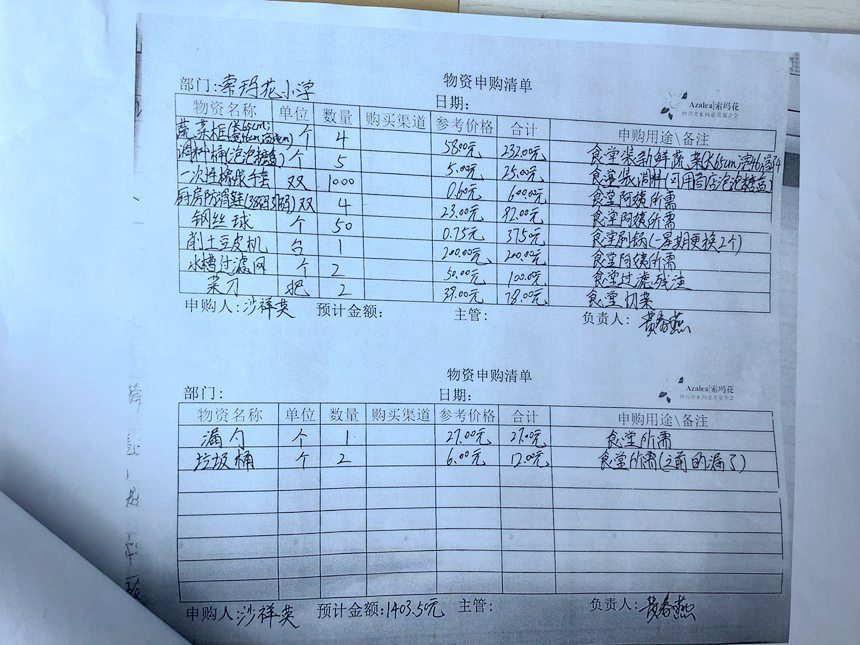 物资申购清单
部门:索玛花小学
日期:
Azalea|索玛花
物资名称 单位 数量 购买渠道 参考价格 合计 申购用途\备注
蔬菜框 个 4 58.00元 232.00元 食堂装新鲜蔬菜
调料桶 个 5 5.00元 25.00元 食堂装调料
一次性 手套 双 1000 0.60元 600.00元 食堂阿姨所需
厨房防滑鞋 双 4 23.00元 92.00元 食堂阿姨所需
钢丝球 个 50 0.75元 37.5元 食堂刷锅(一星期更换2个)
削土豆皮机 台 1 200.00元 200.00元 食堂阿姨所需
水槽过滤网 个 2 50.00元 100.00元 食堂过滤残渣
菜刀 把 2 39.00元 78.00元 食堂切菜
申购人:沙祥英 预计金额: 主管: 负责人:黄春燕
物资申购清单
部门: 日期:
Azalea|索玛花
物资名称 单位 数量 购买渠道 参考价格 合计 申购用途\备注
漏勺 个 1 27.00元 27.00元 食堂所需
垃圾桶 个 2 6.00元 12.00元 食堂所需(之前的漏了)
申购人:沙祥英 预计金额:1403.50元 主管: 负责人:黄春燕